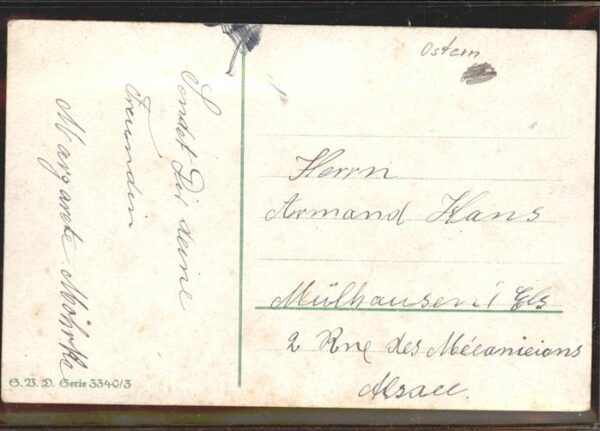 Ostern
Sendet Dir deine
Freundin
Margarete Möhrke
Herrn
Armand Hans
Mülhausen i Els
2 Rue des Mécanicions
Alsace.
G. B. D. Serie 3340/3